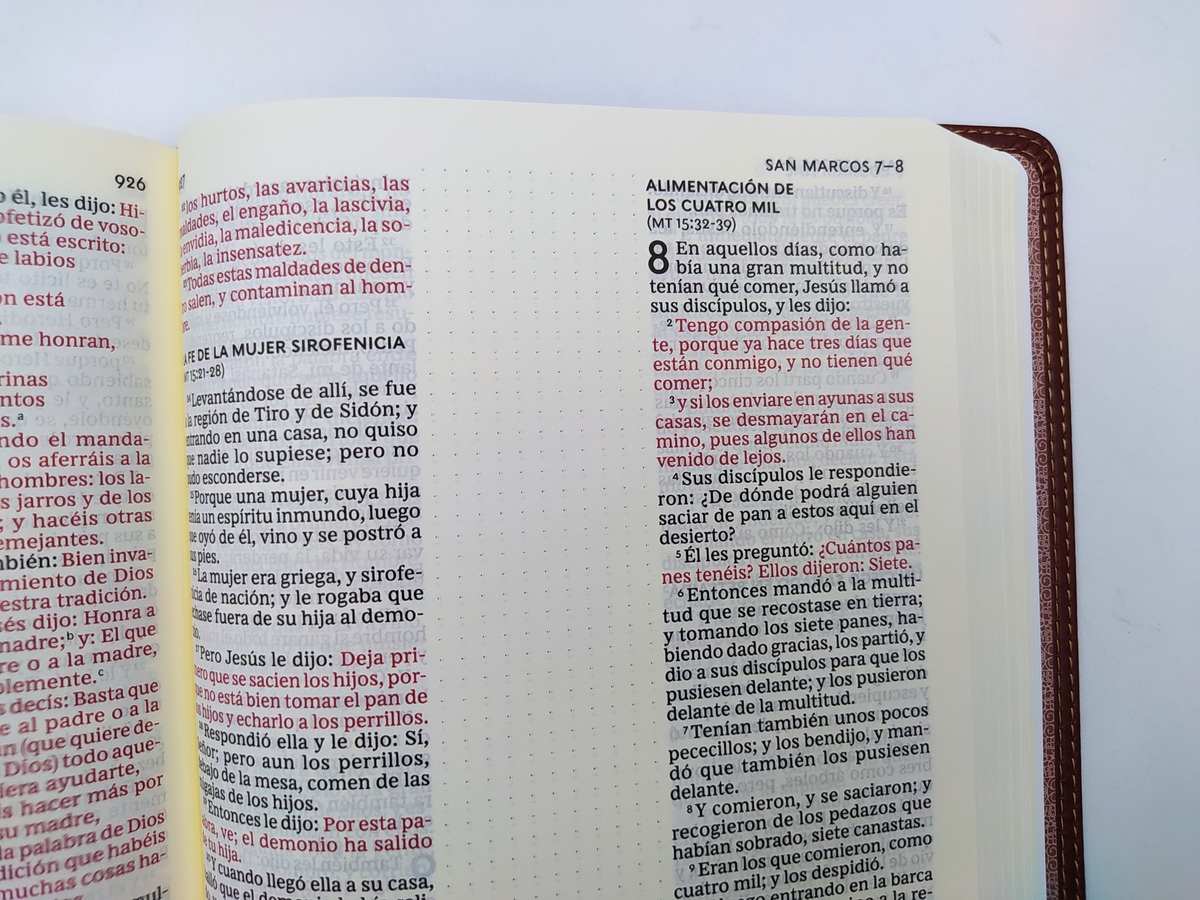 926
o él, les dijo: Hi-
ofetizó de voso-
está escrito:
e labios
ón está
me honran,
rinas
ntos
s.ª
ndo el manda-
os aferráis a la
hombres: los la-
s jarros y de los
; y hacéis otras
emejantes.
mbién: Bien inva-
miento de Dios
estra tradición.
sés dijo: Honra a
madre;ᵇ y: El que
re o a la madre,
plemente.ᶜ
s decís: Basta que
e al padre o a la
n (que quiere de-
Dios) todo aque-
iera ayudarte,
is hacer más por
su madre,
la palabra de Dios
dición que habéis
muchas cosas ha-
SAN MARCOS 7–8
los hurtos, las avaricias, las
maldades, el engaño, la lascivia,
envidia, la maledicencia, la so-
erbia, la insensatez.
Todas estas maldades de den-
o salen, y contaminan al hom-
re.
A FE DE LA MUJER SIROFENICIA
(MT 15:21-28)
Levantándose de allí, se fue
a la región de Tiro y de Sidón; y
entrando en una casa, no quiso
que nadie lo supiese; pero no
udo esconderse.
Porque una mujer, cuya hija
enía un espíritu inmundo, luego
que oyó de él, vino y se postró a
us pies.
La mujer era griega, y sirofe-
icia de nación; y le rogaba que
chase fuera de su hija al demo-
io.
Pero Jesús le dijo: Deja pri-
ero que se sacien los hijos, por-
ue no está bien tomar el pan de
os hijos y echarlo a los perrillos.
Respondió ella y le dijo: Sí,
eñor; pero aun los perrillos,
ebajo de la mesa, comen de las
igajas de los hijos.
Entonces le dijo: Por esta pa-
abra, ve; el demonio ha salido
e tu hija.
Y cuando llegó ella a su casa,
alló que el demonio había sali-
ALIMENTACIÓN DE
LOS CUATRO MIL
(MT 15:32-39)
8 En aquellos días, como ha-
bía una gran multitud, y no
tenían qué comer, Jesús llamó a
sus discípulos, y les dijo:
² Tengo compasión de la gen-
te, porque ya hace tres días que
están conmigo, y no tienen qué
comer;
³ y si los enviare en ayunas a sus
casas, se desmayarán en el ca-
mino, pues algunos de ellos han
venido de lejos.
⁴ Sus discípulos le respondie-
ron: ¿De dónde podrá alguien
saciar de pan a estos aquí en el
desierto?
⁵ Él les preguntó: ¿Cuántos pa-
nes tenéis? Ellos dijeron: Siete.
⁶ Entonces mandó a la multi-
tud que se recostase en tierra;
y tomando los siete panes, ha-
biendo dado gracias, los partió, y
dio a sus discípulos para que los
pusiesen delante; y los pusieron
delante de la multitud.
⁷ Tenían también unos pocos
pececillos; y los bendijo, y man-
dó que también los pusiesen
delante.
⁸ Y comieron, y se saciaron; y
recogieron de los pedazos que
habían sobrado, siete canastas.
⁹ Eran los que comieron, como
cuatro mil; y los despidió.
entrando en la barca